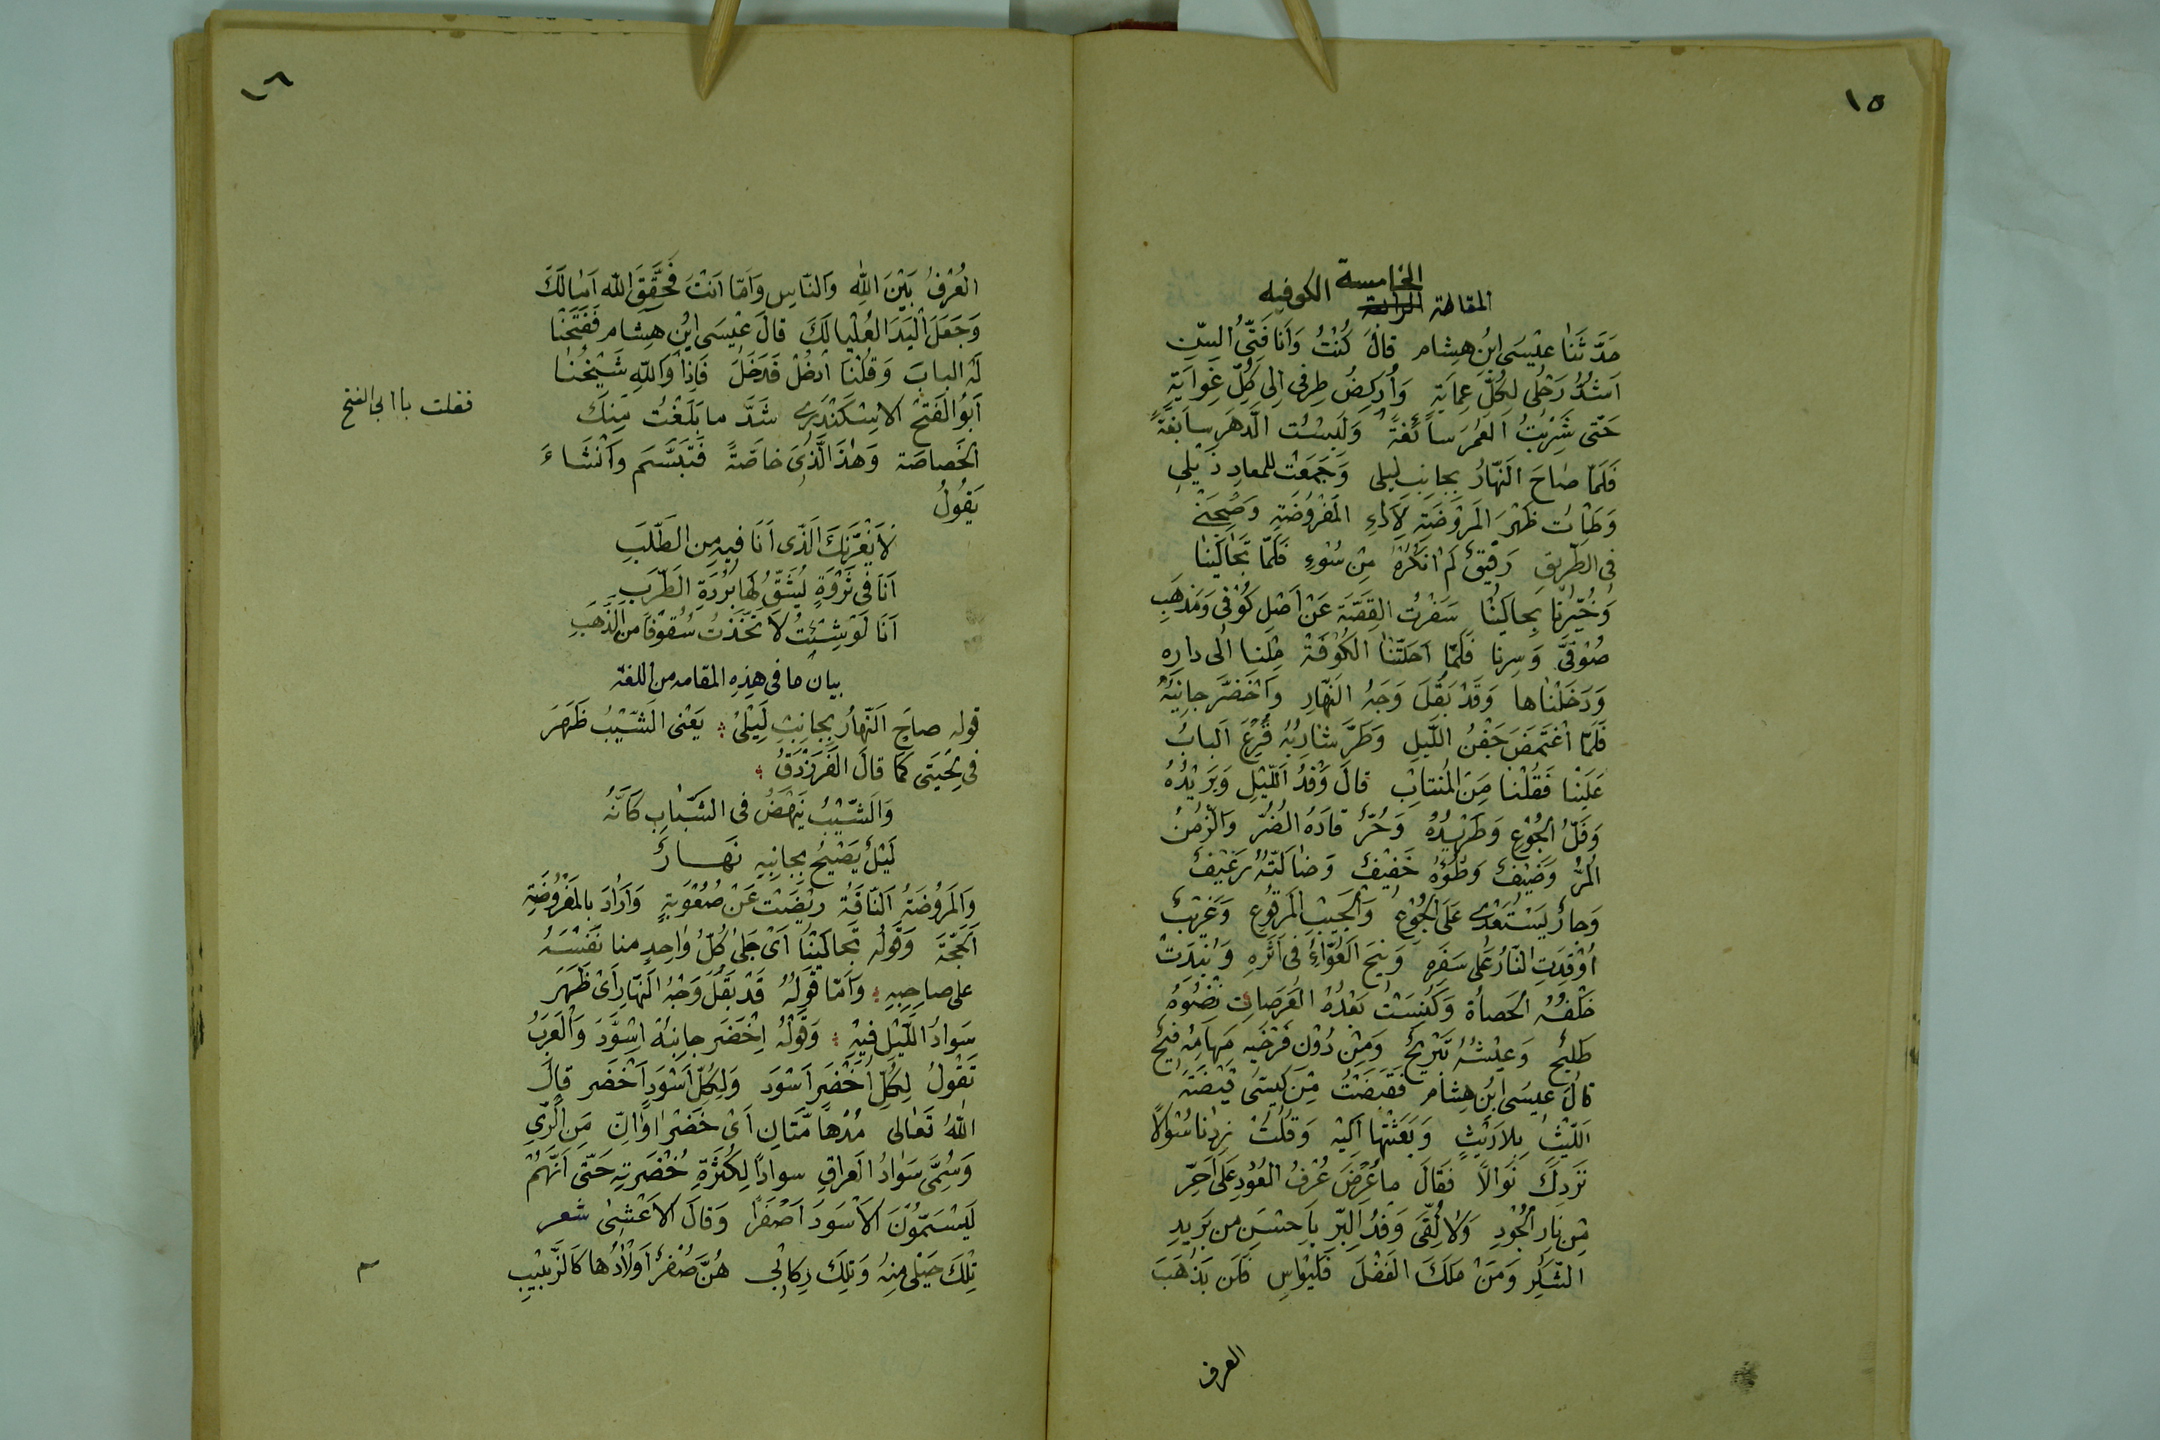 ١٥
الخامسة
المقامة الرابعة الكوفيه
حَدَّثَنَا عيْسَى ابْنُ هِشام قالَ كُنْتُ وَاَنَا فَتِىُّ السِّنّ
اَشُدُّ رَحْلى لِكُلِّ عِمايَةٍ وَاُركِضُ طِرفى اِلى كُلِّ غِوايَةٍ
حَتّى شَرِبْتُ العُمْرَ سائغَةً وَلَبِسْت الدّهَر سابغَةً
فَلَمّا صاحَ النّهارُ بِجانِب ليلى وَجَمَعْت للمعادِ ذَيْلى
وَطِئْتُ ظَهْرَ المَرُوْضَةِ لِاَداءِ المَفْرُوْضَةِ وَصَحِبَنْي
فِى الطّريقِ رَفيْقٌ لَمْ انْكُرْهُ مِنْ سُوْءٍ فَلَمّا تَجالَيْنا
وَخُبِّرْنا بِحالَيْنا سَفَرْت القِصَّة عَنْ اَصْل كُوْفى وَمَذهَبِ
صُوْفىَّ وَسِرنا فَلَمّا اَحَلّتْنا الكُوفَةُ مِلْنا اِلى دارِهِ
وَدَخَلْناها وَقَدْ بَقَلَ وَجَهُ النّهارِ وَاخْضَرَّ جانِبُهُ
فَلَمّا اغْتَمَضَ جَفْنُ اللّيل وَطَرَّ شارِبُهُ قُرِعَ البابُ
عَلَيْنا فَقُلْنا مَنِ المُنتابُ قالَ وَفْدُ اللّيْلِ وَبَرِيْدُهُ
وَفَلُّ الجُوْعِ وَطَرْيدُهُ وَحُرٌّ قادَهُ الضُرّ وَالزّمَنُ
المُرُّ وَضَيْفٌ وَطْؤُهُ خَفيْفٌ وَضالّتُهُ رَغيْفٌ
وَجارٌ يَسْتَعْدى عَلَى الجُوْعِ وَالْجَيْبِ المَرقُوعِ وَغَريْبٌ
اُوْقِدَتِ النّارُ عَلى سَفَرِهِ وَنبَحَ العَوّاءُ فى اَثَرِهِ وَنُبِذَتْ
خَلْفَهُ الحَصاةُ وَكُنِسَتْ بَعْدُهُ العَرَصاتِ نضْوُهُ
طَليْحٌ وَعيْشُهُ تَبْريْحٌ وَمِنْ دُوْن فَرْخَيهِ مَهامِهُ فيْحٌ
قالَ عيسَى ابْنُ هِشام فَقَبَضْتُ مِنْ كيسى قَبْضَةَ
اللّيْثِ بِلاَرَيْثٍ وَبَعَثْتُها اَلَيْهِ وَقُلْتُ زِدْنا سُئوالاً
نَزِدكَ نَوالاً فَقَالَ ماعُرِضَ عُرْفُ العُوْدِ عَلى اَحَرّ
مِنْ نارِ الْجُوْدِ وَلا لُقِىَ وَفْدُ البّرِ بِاَحسَنِ من بَريدِ
الشّكِرِ وَمَنْ مَلَكَ الفَضْلَ فَليُواسِ فَلن يَذْهَبَ
العرف
١٦
العُرْفُ بَيْنَ اللّهِ وَالنّاسِ وَاَمّا اَنتَ فَحَقّقَ اللّه آمالَكَ
وَجَعَلَ اليَدَ العُلْيا لَكَ قالَ عيْسَى ابْنُ هِشام فَفَتَحْنا
لَهُ البابَ وَقُلْنَا ادْخُلْ فَدَخَلَ فَاِذا وَاللّهِ شَيْخُنا
اَبُو الفَتْحِ الاسْكَنْدَرى شَدَّ ما بَلَغْتُ مِنكَ
فقلت يا ابا الفتح
الخَصاصَة وَهذا الّذى خاصّةً فَتَبَسّمَ وَاَنْشَاءَ
يَقُولُ
لاَ يَغُرَّنكَ الّذى اَنا فيهِ مِن الطّلَبِ
اَنَا فى ثَرْوَةٍ تُشَقُّ لَها بُرْدَةِ الطَّرَبِ
اَنَا لَوْ شِئْتُ لاَ تّخَذْتُ سُقوْفاً من الذّهَبِ
بيانُ ما فى هذِهِ المقامه من اللغة
قولهِ صاحَ النّهارُ بِجانِبِ لَيْلى ؛ يَعْنى الشّيْبُ ظَهَرَ
فى لِحْيَتى كَما قالَ الفَرَزدَقُ ؛
وَالشّيْبُ يَنْهَضُ فى الشّبابِ كَانّهُ
لَيْلٌ يَصْيحُ بِجانِبِيهِ نَهــارٌ
وَالمَرُوْضَةُ النّاقَةُ رِيْضَت عَنْ صُعُوْبَةٍ وَاَرادَ بِالمَفْرُوْضَةِ
الحَجّةَ وَقَوْلُه تَجالَيْنا اَىْ جَلى كُلُّ واحِدٍ منا نَفْسَهُ
على صاحِبِهِ ؛ وَاَمّا قَوْلُهُ قَدْ بَقَلَ وَجْهُ النّهارِ اَىْ ظَهَرَ
سَوادُ اللّيْلِ فيْهِ ؛ وَقَوْلُهُ اِخْضَرَ جانِبُهُ اِسْوَدَّ وَالْعَرَبُ
تَقُولُ لِكُلّ اَخْضَرٍ اَسْوَد وَلِكُلّ اَسْوَدٍ اَخْضَر قالَ
اللّهُ تَعالى مُدْهامّتانِ اَىْ خَضْراوانِ مِنَ الرّىِ
وَسُمّىَ سَوادُ العِراقِ سواداً لِكَثْرَةِ خُضْرَتِهِ حَتّى اَنّهُمْ
لَيُسَمّوُنَ الاَسْوَدَ اَصْفَراً وَقالَ الاَعْشى شعر
تِلْكَ خَيْلى مِنهُ وَتِلكَ رِكابْى هُنَّ صُفْرٌ اَوْلادُها كَالزّبيْبِ